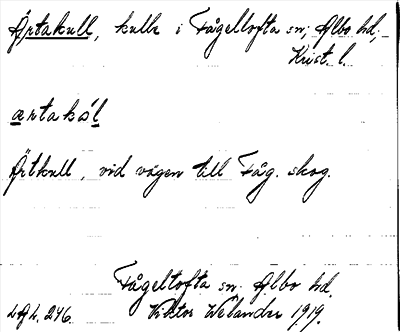 Ärtakull, kulle i Fågeltofta sn; Albo hd,
Krist. l.
ærtakúl
Ärtkull, vid vägen till Fåg. skog.
Fågeltofta sn. Albo hd.
LAL. 246. Viktor Welander 1919.